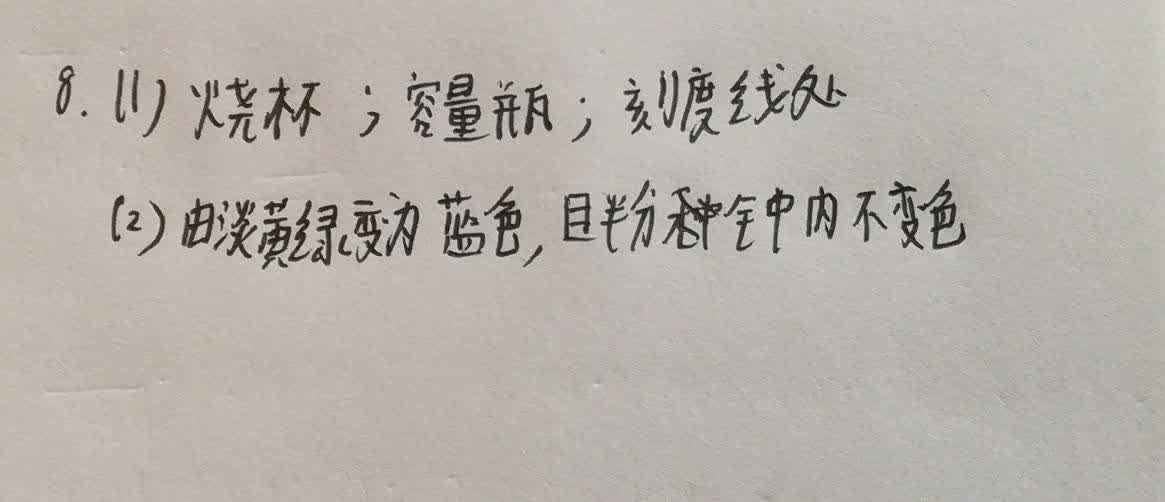 8. (1) 烧杯；容量瓶；刻度线处
(2) 由淡黄绿变为蓝色，且半分钟内不变色